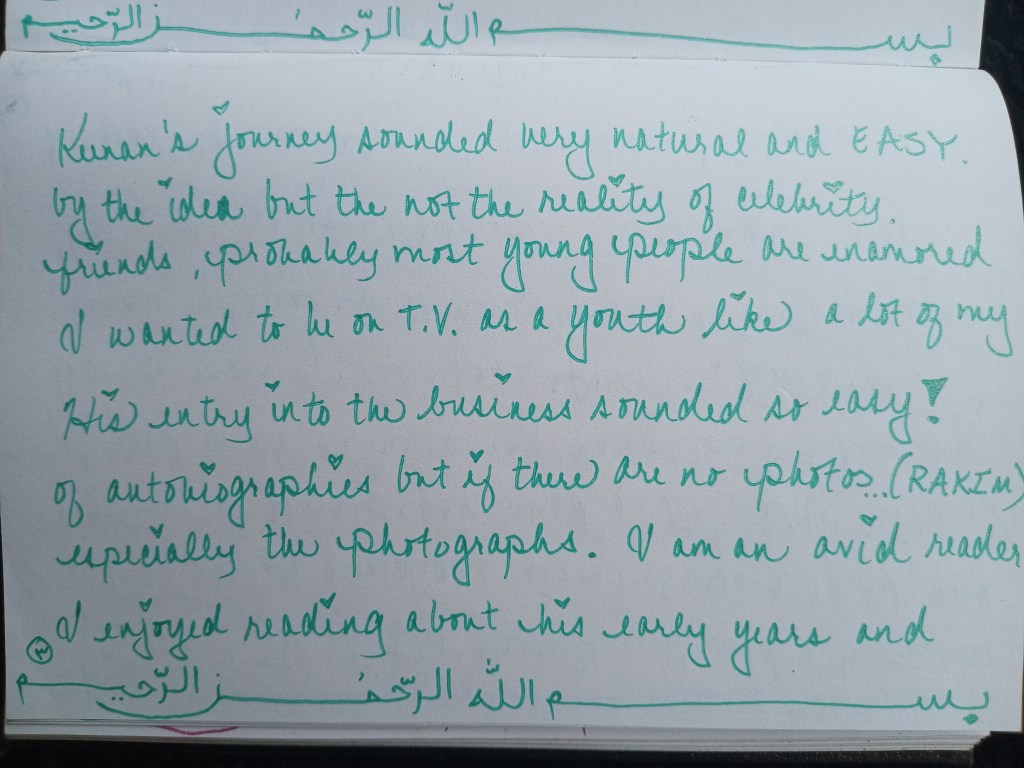 بســـــم اللّه الرّحمٰـــن الرّحيـــم
Keenan's journey sounded very natural and EASY.
by the idea but the not the reality of celebrity.
friends, probably most young people are enamored
I wanted to be on T.V. as a youth like a lot of my
His entry into the business sounded so easy!
of autobiographies but if there are no photos...(RAKIM)
especially the photographs. I am an avid reader
I enjoyed reading about his early years and
٣
بســـــم اللّه الرّحمٰـــن الرّحيـــم